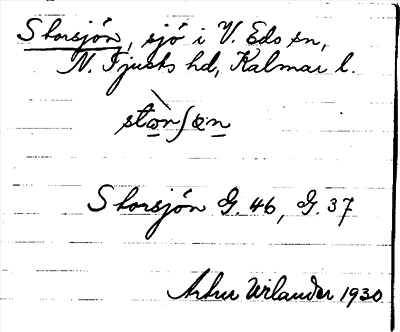 Storsjön, sjö i V. Eds sn,
N. Tjusts hd, Kalmar l.
Storsjön G. 46, G. 37
Arthur Urlander 1930